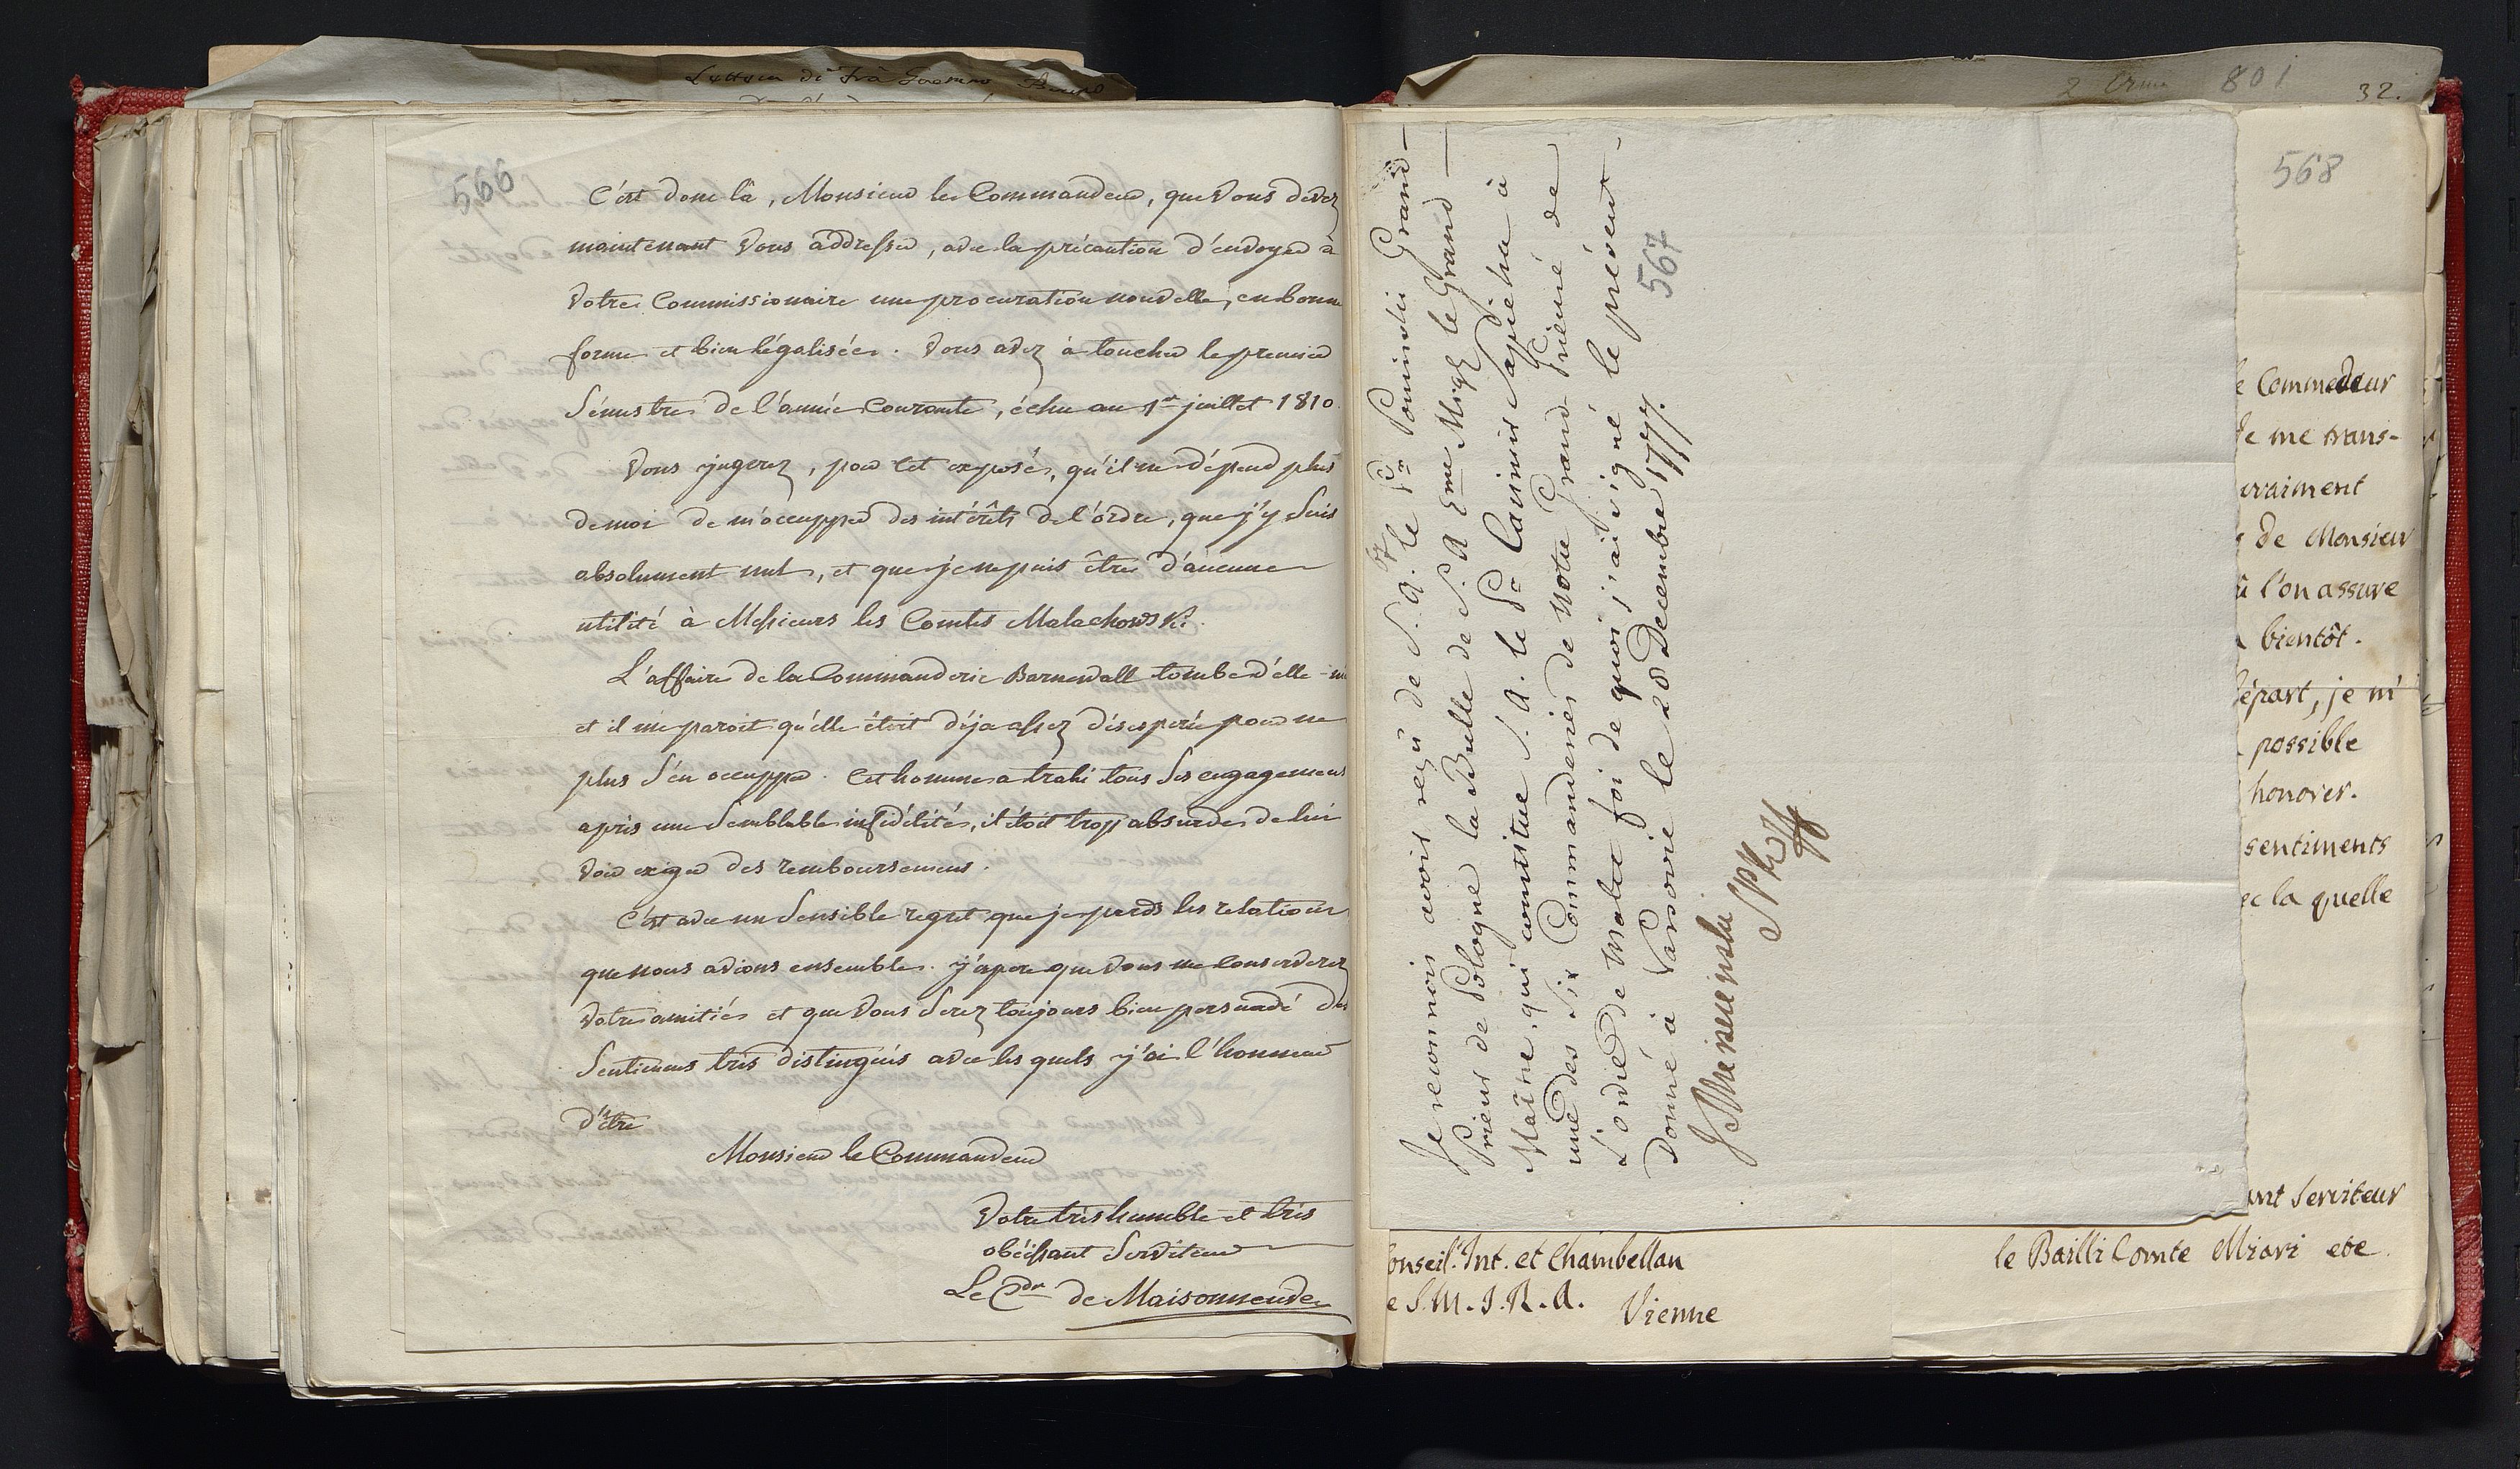 Lettera di frà
2 801
32.
566
C'est donc là, Monsieur le Commandeur, que Vous devez
maintenant Vous addresser, avec la précaution d'envoyer à
Votre Commissionaire une procuration nouvelle, en bonne
forme et bien légalisée. Vous avez à toucher le premier
Sémestre de l'année Courante, échu au 1er juillet 1810.
Vous jugerez, par cet exposé, qu'il ne dépend plus
de moi de m'occupper des intérêts de l'ordre, que j'y Suis
absolument nul, et que je ne puis être d'aucune
utilité à Messieurs les Comtes Malachowski.
L'affaire de la Commanderie Barnewall tombe d'elle-
et il me paroit qu'elle étoit déja assez désesperée pour ne
plus S'en occupper. Cet homme a trahi tous Ses engagemens
après une Semblable infidélité, il étoit trop absurde de lui
Voir exiger des remboursemens.
C'est avec un Sensible regret que je perds les relations
que nous avions ensemble. j'espere que Vous me Conserverez
Votre amitié et que Vous Serez toujours bien persuadé des
Sentimens très distingués avec les quels j'ai l'honneur
d'être
Monsieur le Commandeur
Votre très humble et très
obéissant Serviteur
Le Cdr de Maisonneuve
Je reconnois avoir reçu de S. A. le Pce Poninski Grand
Prieur de Pologne la Bulle de S. A Eme Msgr le Grand
Maître, qui constitue S. A. le Pce Casimir Sapieha à
une des Six Commanderies de Notre Grand Prieuré de
L'ordre de Malte foi de quoi j'ai signé le présent
Donné à Varsovie le 28 Decembre 1777.
567
568
e Commedeur
e me trans-
vraiment
de Monsieur
l'on assure
bientôt.
épart, je m'
possible
honorer.
sentiments
ec la quelle
ant Serviteur
le Bailli Comte Miari etc
onseil. Int. et Chambellan
e S. M. I. R. A.
Vienne